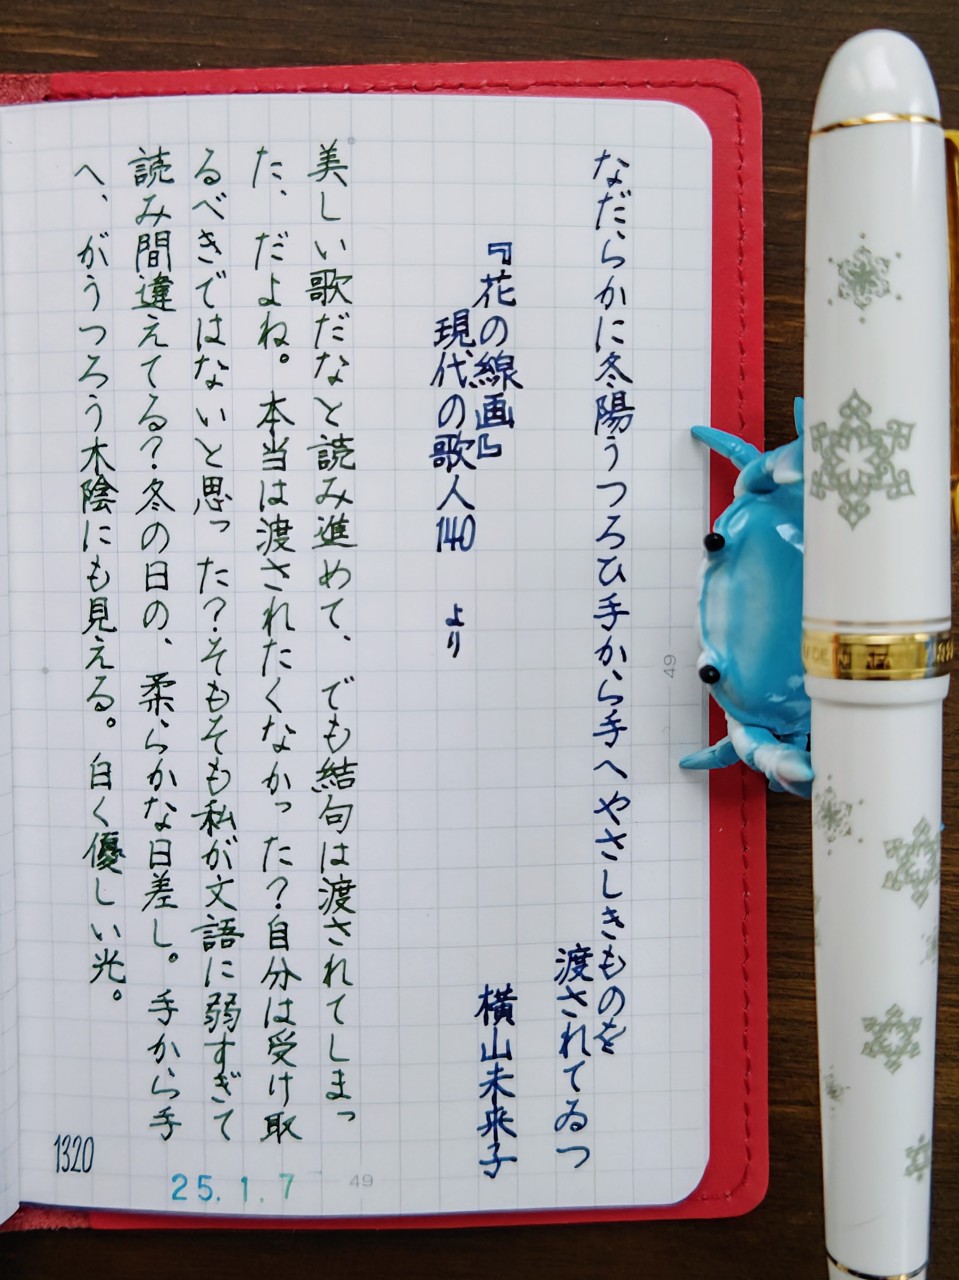 なだらかに冬陽うつろひ手から手へやさしきものを
渡されてゐつ
『花の線画』
現代の歌人140 より
横山未来子
美しい歌だなと読み進めて、でも結句は渡されてしまっ
た、だよね。本当は渡されたくなかった？自分は受け取
るべきではないと思った？そもそも私が文語に弱すぎて
読み間違えてる？冬の日の、柔らかな日差し。手から手
へ、がうつろう木陰にも見える。白く優しい光。
1320
25.1.7
49
49